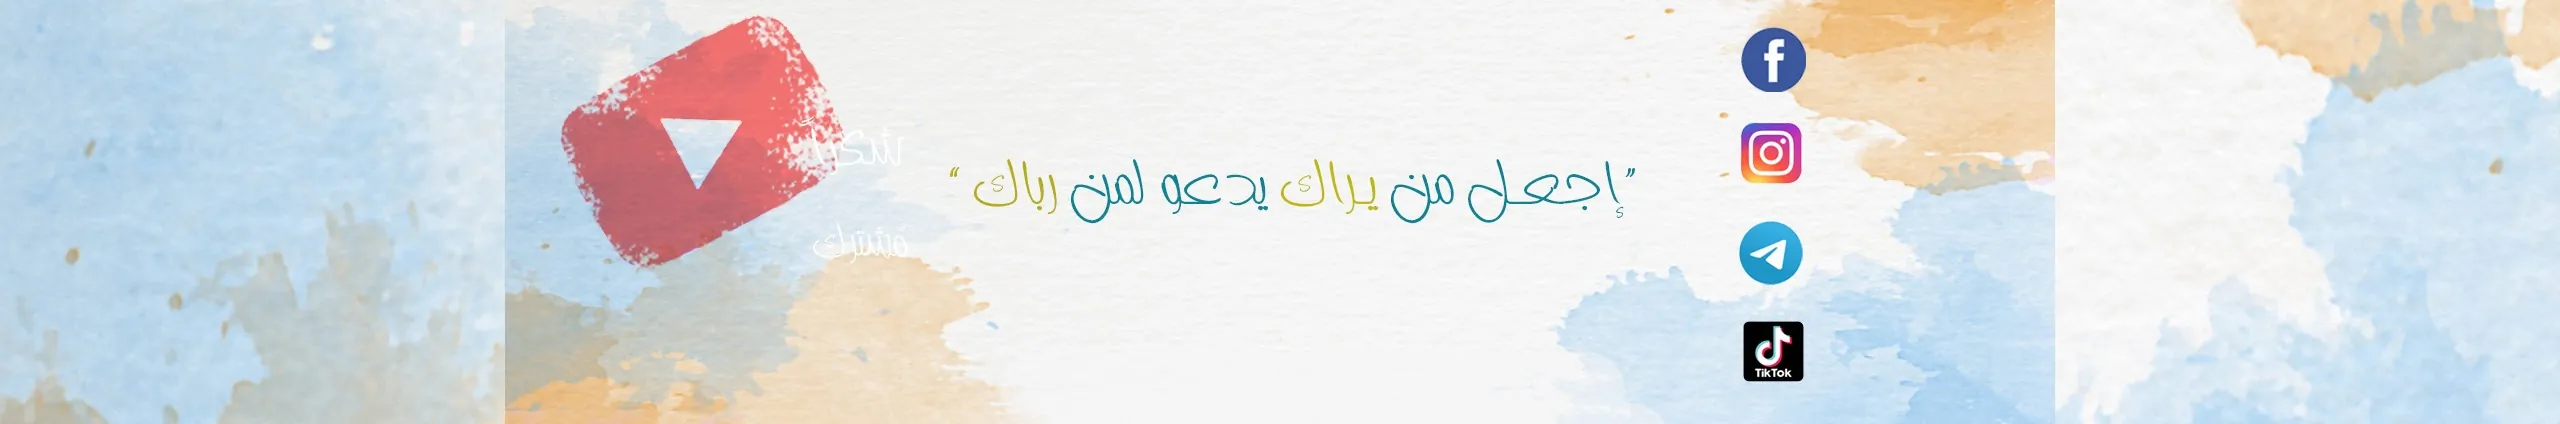 شكراً
"إجعل من يراك يدعو لمن رباك"
مشترك
TikTok